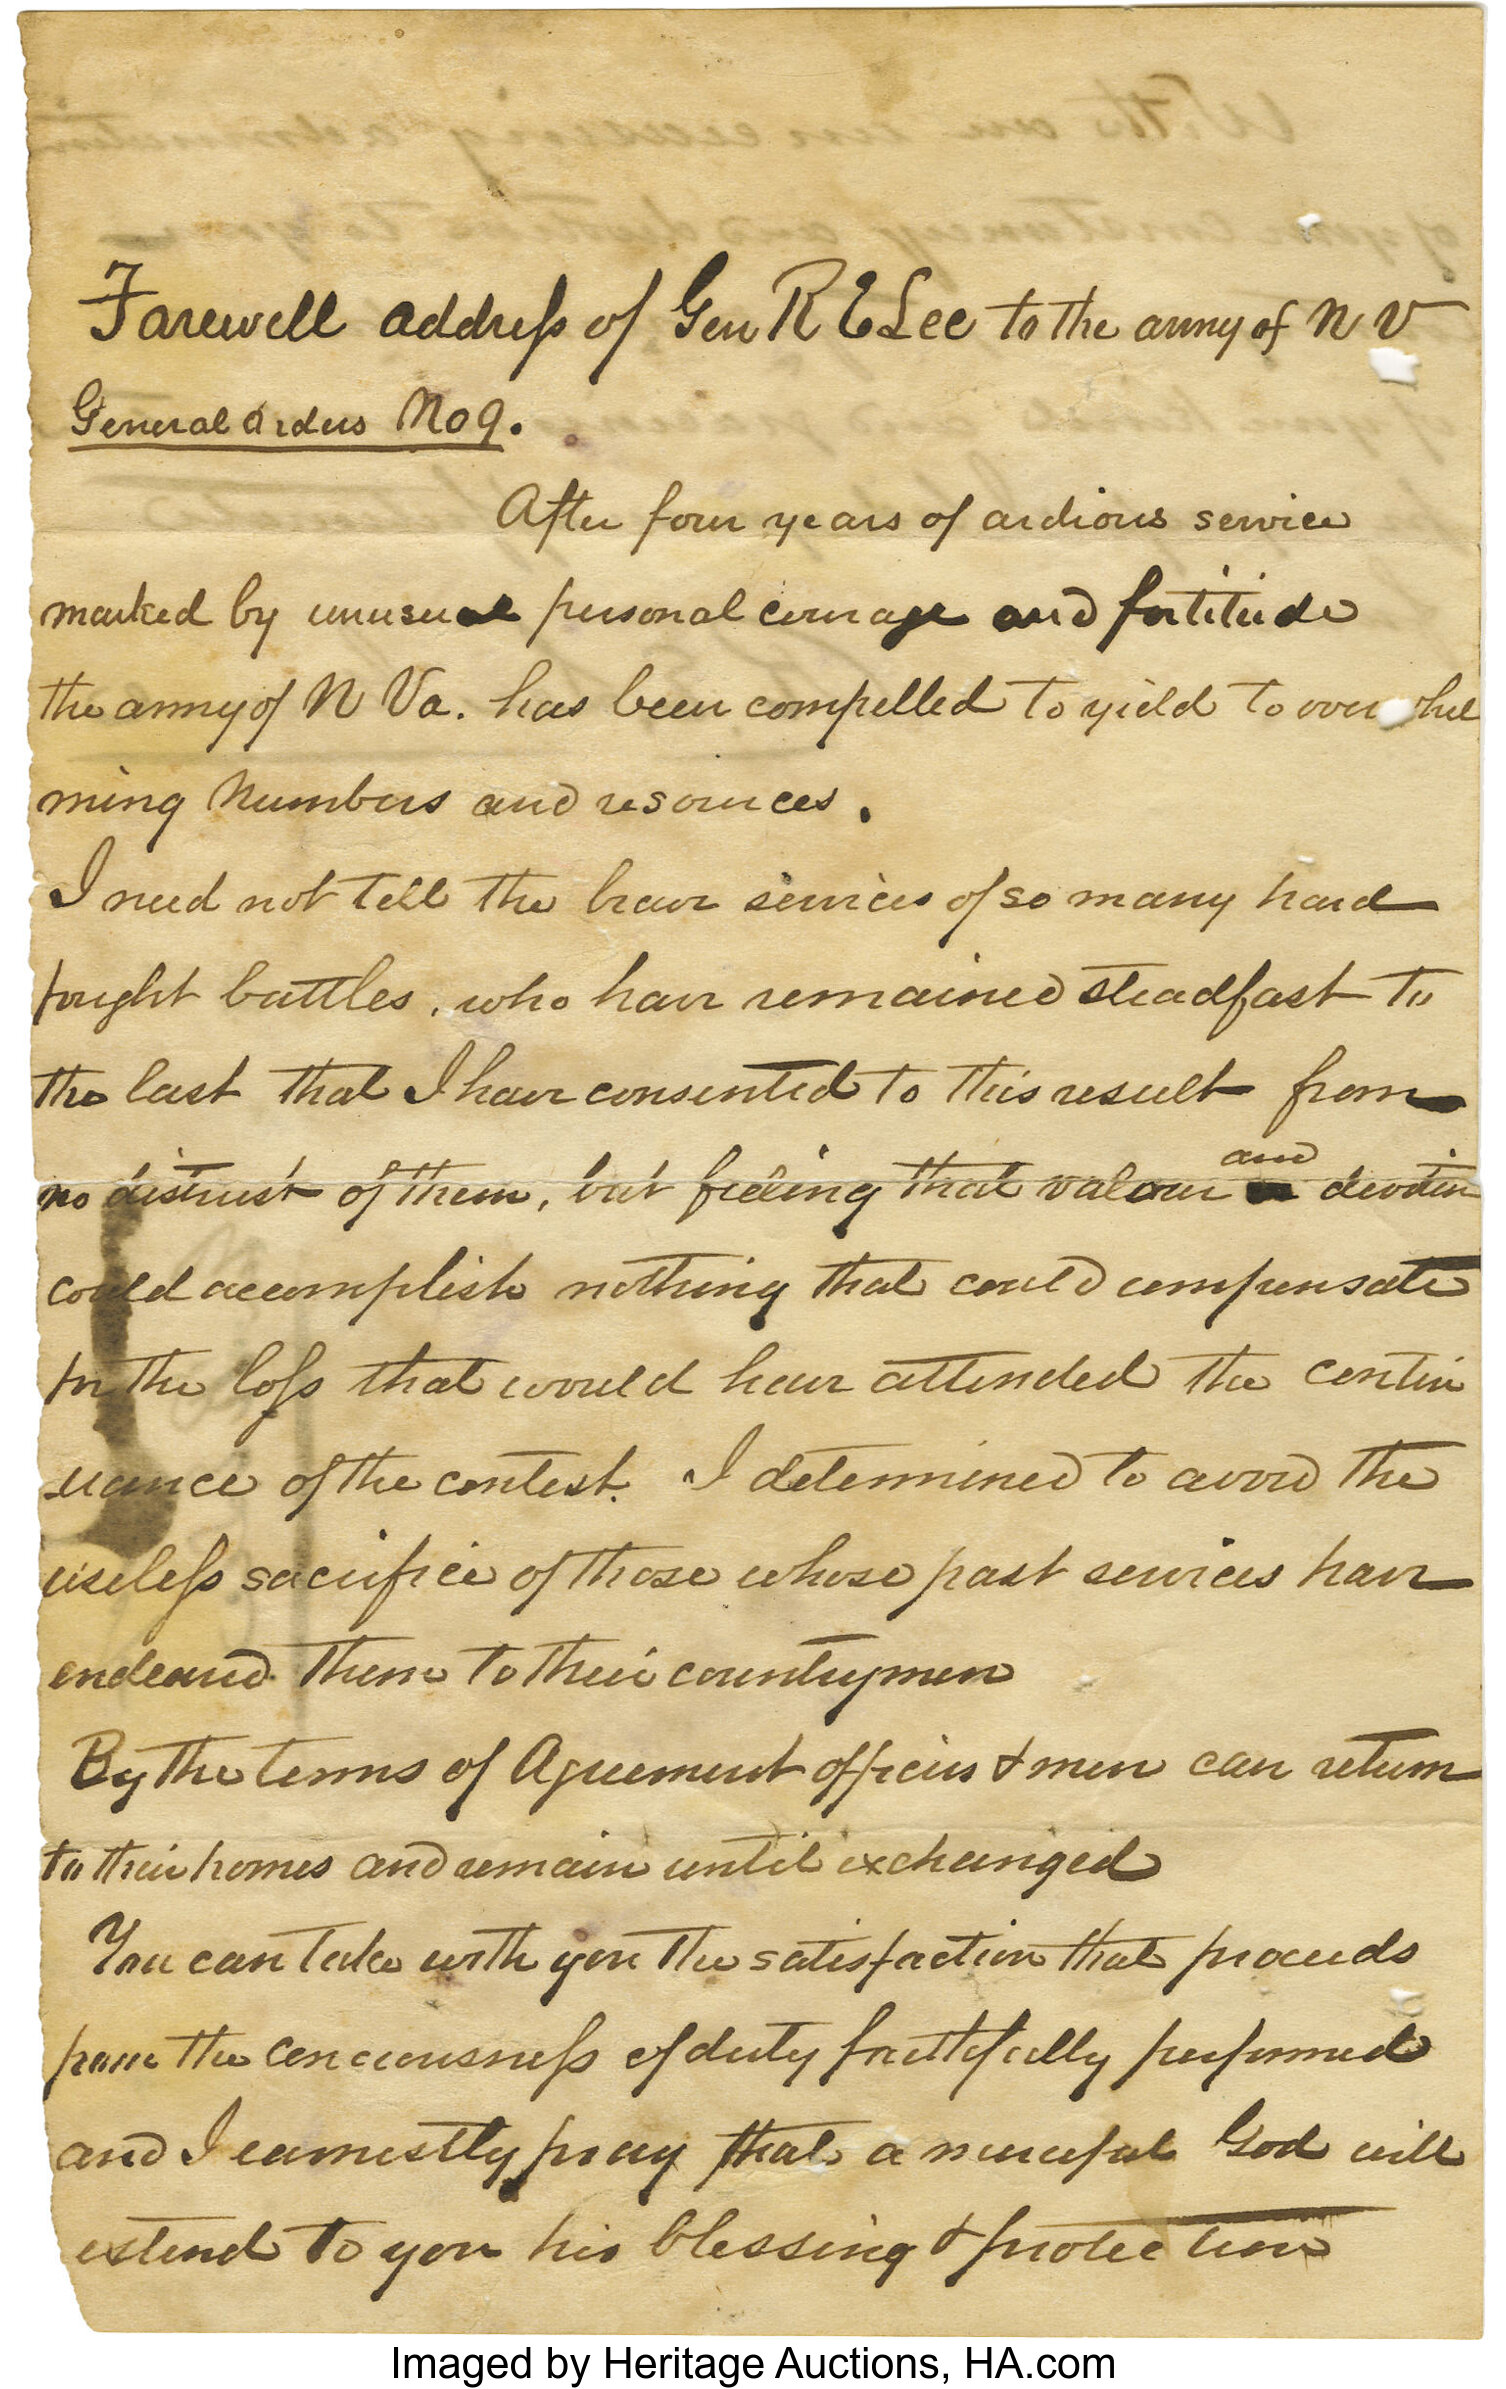 Farewell address of Gen R E Lee to the army of N V
General Orders No 9.
After four years of ardious service
marked by unusual personal courage and fortitude
the army of N Va. has been compelled to yield to over whel
ming Numbers and resources.
I need not tell the brave services of so many hard
fought battles, who have remained steadfast to
the last that I have consented to this result from
no distrust of them, but feeling that valour and devotion
could accomplish nothing that could compensate
for the loss that would have attended the contin
uance of the contest. I determined to avoid the
useless sacrifice of those whose past services have
endeared them to their countrymen
By the terms of Agreement officers & men can return
to their homes and remain until exchanged
You can take with you the satisfaction that proceeds
from the conciousness of duty faithfully performed
and I earnestly pray that a merciful God will
extend to you his blessing & protection
Imaged by Heritage Auctions, HA.com